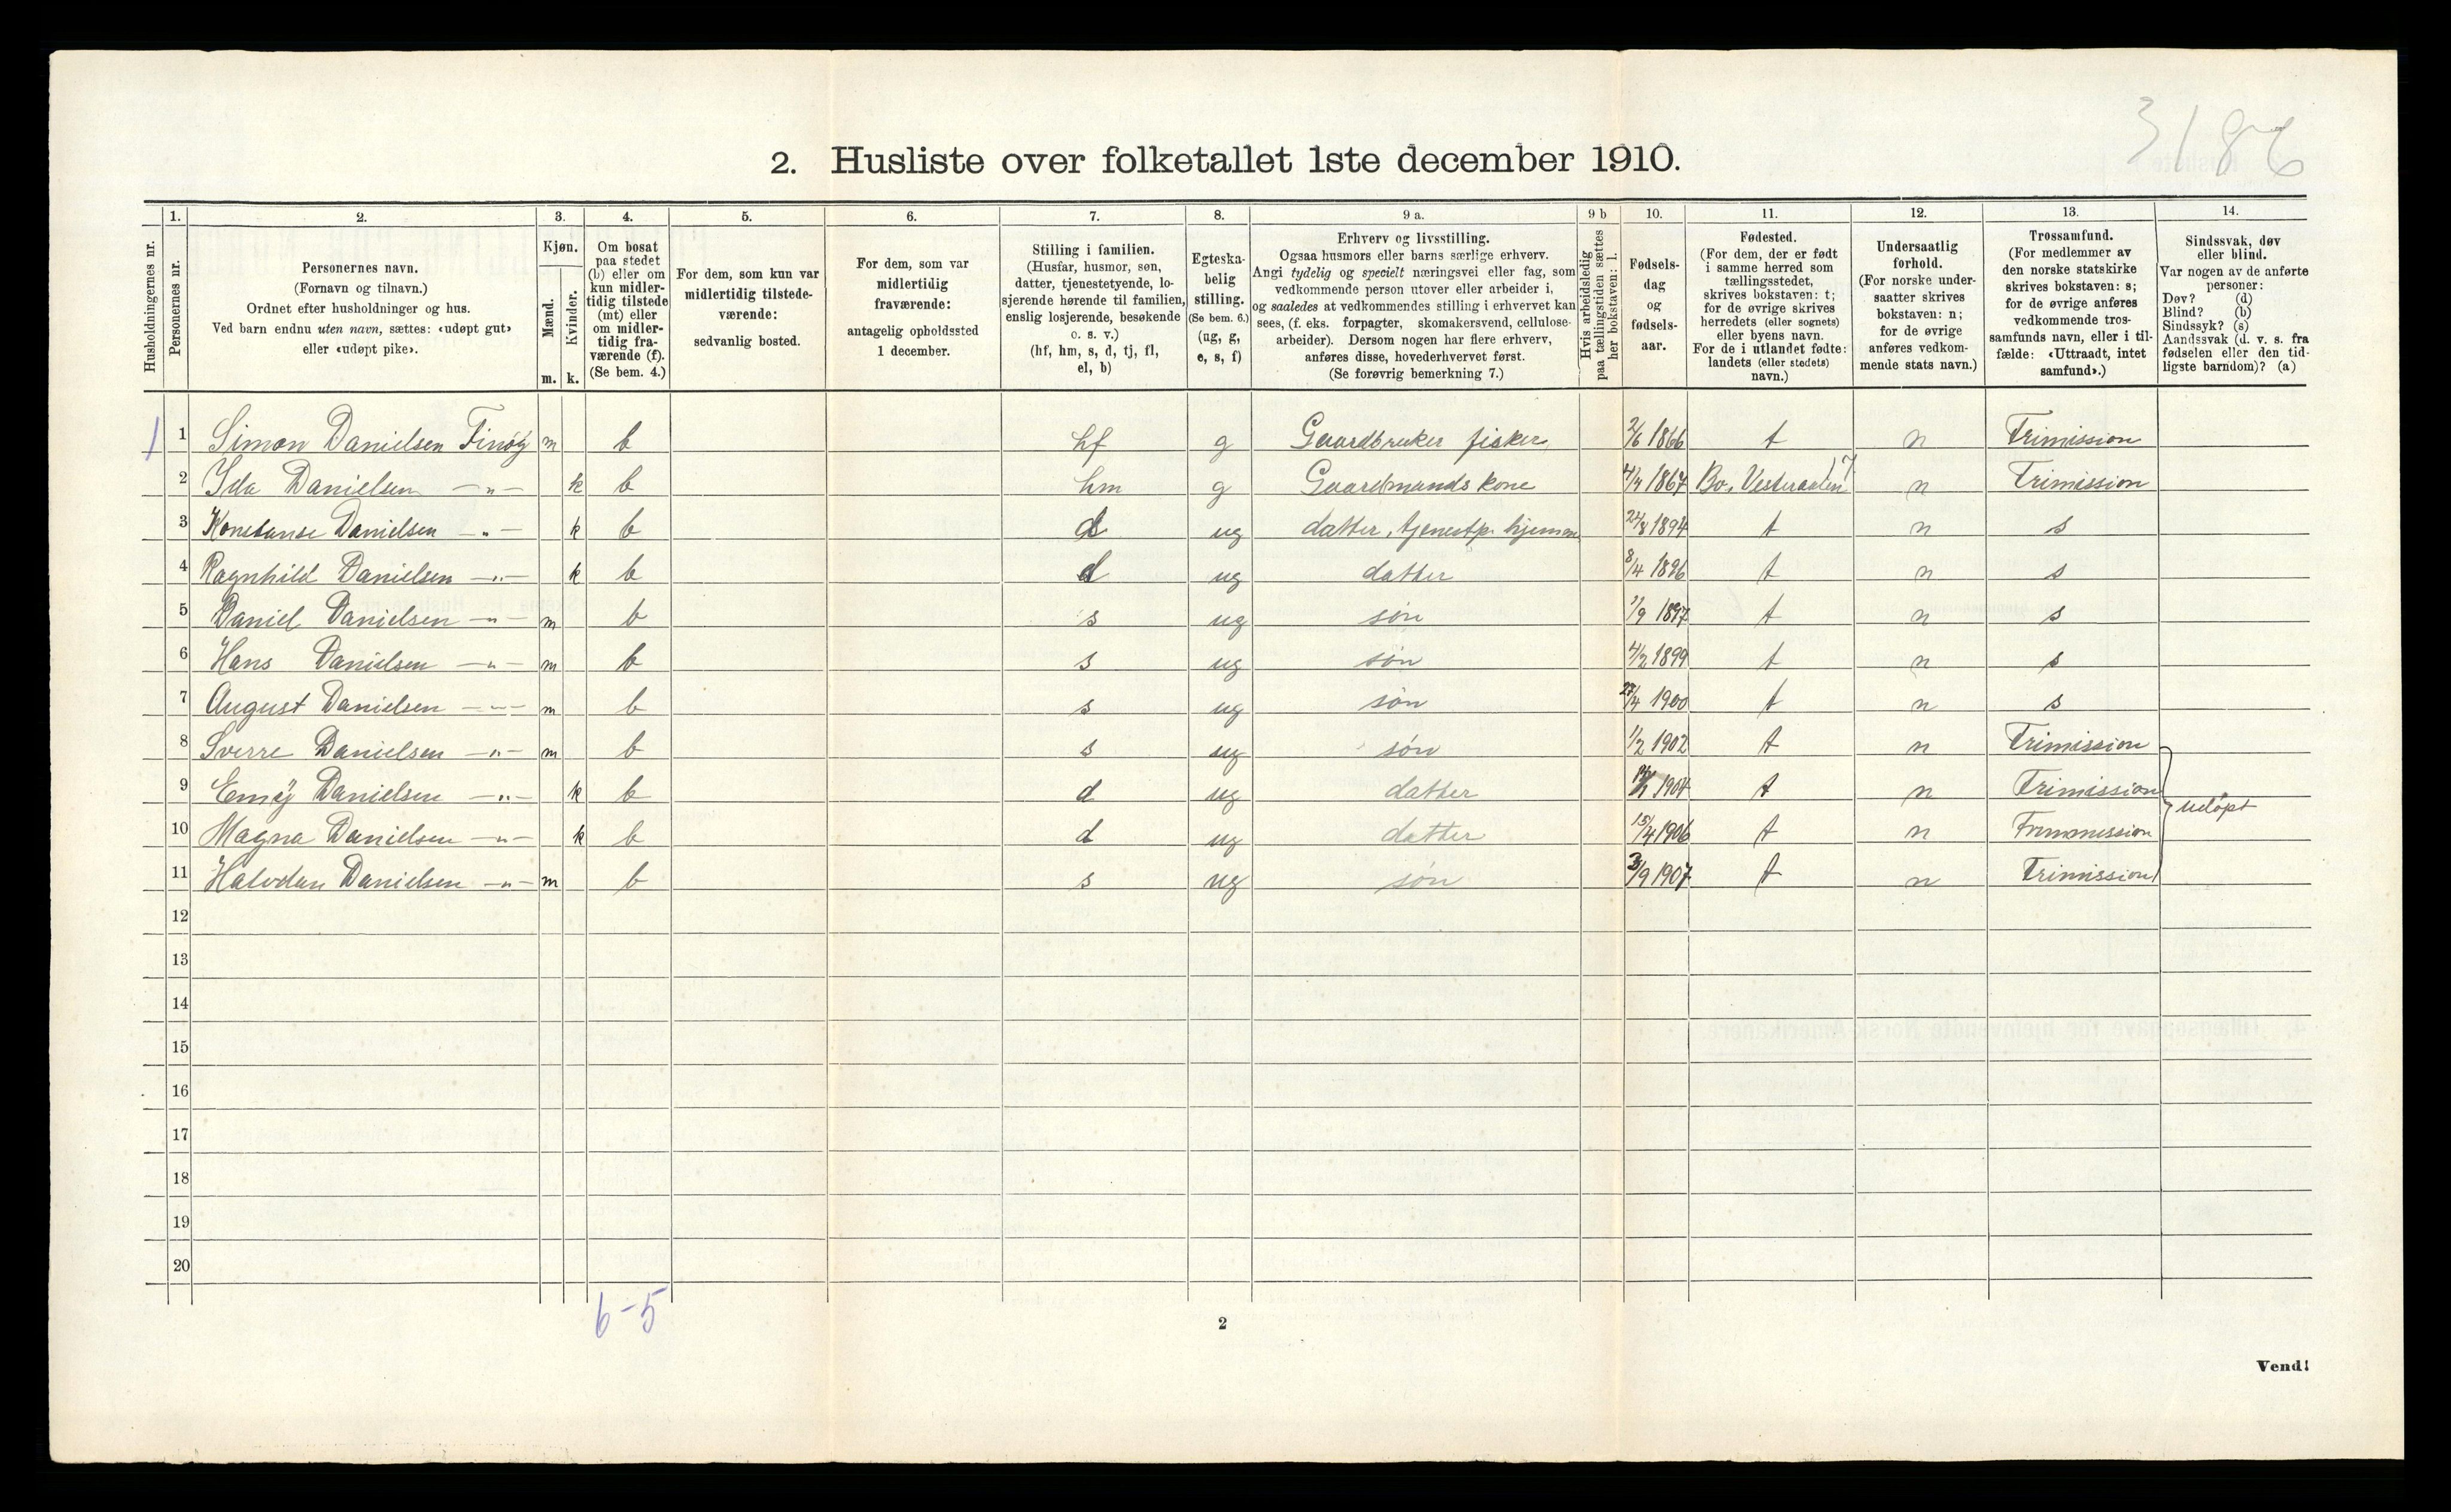 3186
2. Husliste over folketallet 1ste december 1910.
1. 2. 3. 4. 5. 6. 7. 8. 9 a. 9 b 10. 11. 12. 13. 14.
Husholdningernes nr.
Personernes nr.
Personernes navn.
(Fornavn og tilnavn.)
Ordnet efter husholdninger og hus.
Ved barn endnu uten navn, sættes: «udøpt gut»
eller «udøpt pike».
Kjøn.
Mænd.
Kvinder.
m. k.
Om bosat
paa stedet
(b) eller om
kun midler-
tidig tilstede
(mt) eller
om midler-
tidig fra-
værende (f).
(Se bem. 4.)
For dem, som kun var
midlertidig tilstede-
værende:
sedvanlig bosted.
For dem, som var
midlertidig
fraværende:
antagelig opholdssted
1 december.
Stilling i familien.
(Husfar, husmor, søn,
datter, tjenestetyende, lo-
sjerende hørende til familien,
enslig losjerende, besøkende
o. s. v.)
(hf, hm, s, d, tj, fl,
el, b)
Egteska-
belig
stilling.
(Se bem. 6.)
(ug, g,
e, s, f)
Erhverv og livsstilling.
Ogsaa husmors eller barns særlige erhverv.
Angi tydelig og specielt næringsvei eller fag, som
vedkommende person utover eller arbeider i,
og saaledes at vedkommendes stilling i erhvervet kan
sees, (f. eks. forpagter, skomakersvend, cellulose-
arbeider). Dersom nogen har flere erhverv,
anføres disse, hovederhvervet først.
(Se forøvrig bemerkning 7.)
Hvis arbeidsledig
paa tællingstiden sættes
her bokstaven: l.
Fødsels-
dag
og
fødsels-
aar.
Fødested.
(For dem, der er født
i samme herred som
tællingsstedet,
skrives bokstaven: t;
for de øvrige skrives
herredets (eller sognets)
eller byens navn.
For de i utlandet fødte:
landets (eller stedets)
navn.)
Undersaatlig
forhold.
(For norske under-
saatter skrives
bokstaven: n;
for de øvrige
anføres vedkom-
mende stats navn.)
Trossamfund.
(For medlemmer av
den norske statskirke
skrives bokstaven: s;
for de øvrige anføres
vedkommende tros-
samfunds navn, eller i til-
fælde: «Uttraadt, intet
samfund».)
Sindssvak, døv
eller blind.
Var nogen av de anførte
personer:
Døv? (d)
Blind? (b)
Sindssyk? (s)
Aandssvak (d. v. s. fra
fødselen eller den tid-
ligste barndom)? (a)
1 1 Simon Danielsen Finøy m b hf g Gaardbruker fisker 2/6 1866 t n Frimission
2 Ida Danielsen —"— k b hm g Gaardmands kone 4/4 1867 Bø, Vesteraalen n Frimission
3 Konstanse Danielsen —"— k b d ug datter, tjenestp. hjemme 24/8 1894 t n s
4 Ragnhild Danielsen —"— k b d ug datter 8/4 1896 t n s
5 Daniel Danielsen —"— m b s ug søn 1/9 1897 t n s
6 Hans Danielsen —"— m b s ug søn 4/2 1899 t n s
7 August Danielsen —"— m b s ug søn 27/4 1900 t n s
8 Sverre Danielsen —"— m b s ug søn 1/2 1902 t n Frimission
9 Emøy Danielsen —"— k b d ug datter 1904 t n Frimission
udøpt
10 Magna Danielsen —"— k b d ug datter 15/4 1906 t n Frimission
11 Halvdan Danielsen —"— m b s ug søn 3/9 1907 t n Frimission
12
13
14
15
16
17
18
19
20
6-5
2
Vend!